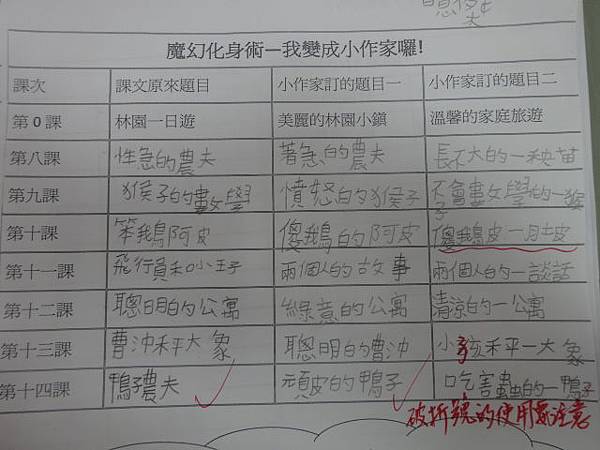 魔幻化身術－我變成小作家囉!
課次 課文原來題目 小作家訂的題目一 小作家訂的題目二
第 0 課 林園一日遊 美麗的林園小鎮 溫馨的家庭旅遊
第八課 性急的農夫 著急的農夫 長不大的一秧苗
第九課 猴子的數學 憤怒的猴子 不會數學的一猴子
第十課 笨鵝阿皮 傻鵝的阿皮 傻鵝皮一阿皮
第十一課 飛行員和小王子 兩個人的故事 兩個人的一談話
第十二課 聰明的公寓 綠意的公寓 清涼的一公寓
第十三課 曹沖秤大象 聰明的曹沖 小孩秤一大象
第十四課 鴨子農夫 頑皮的鴨子 吃害蟲的一鴨子
破折號的使用要注意